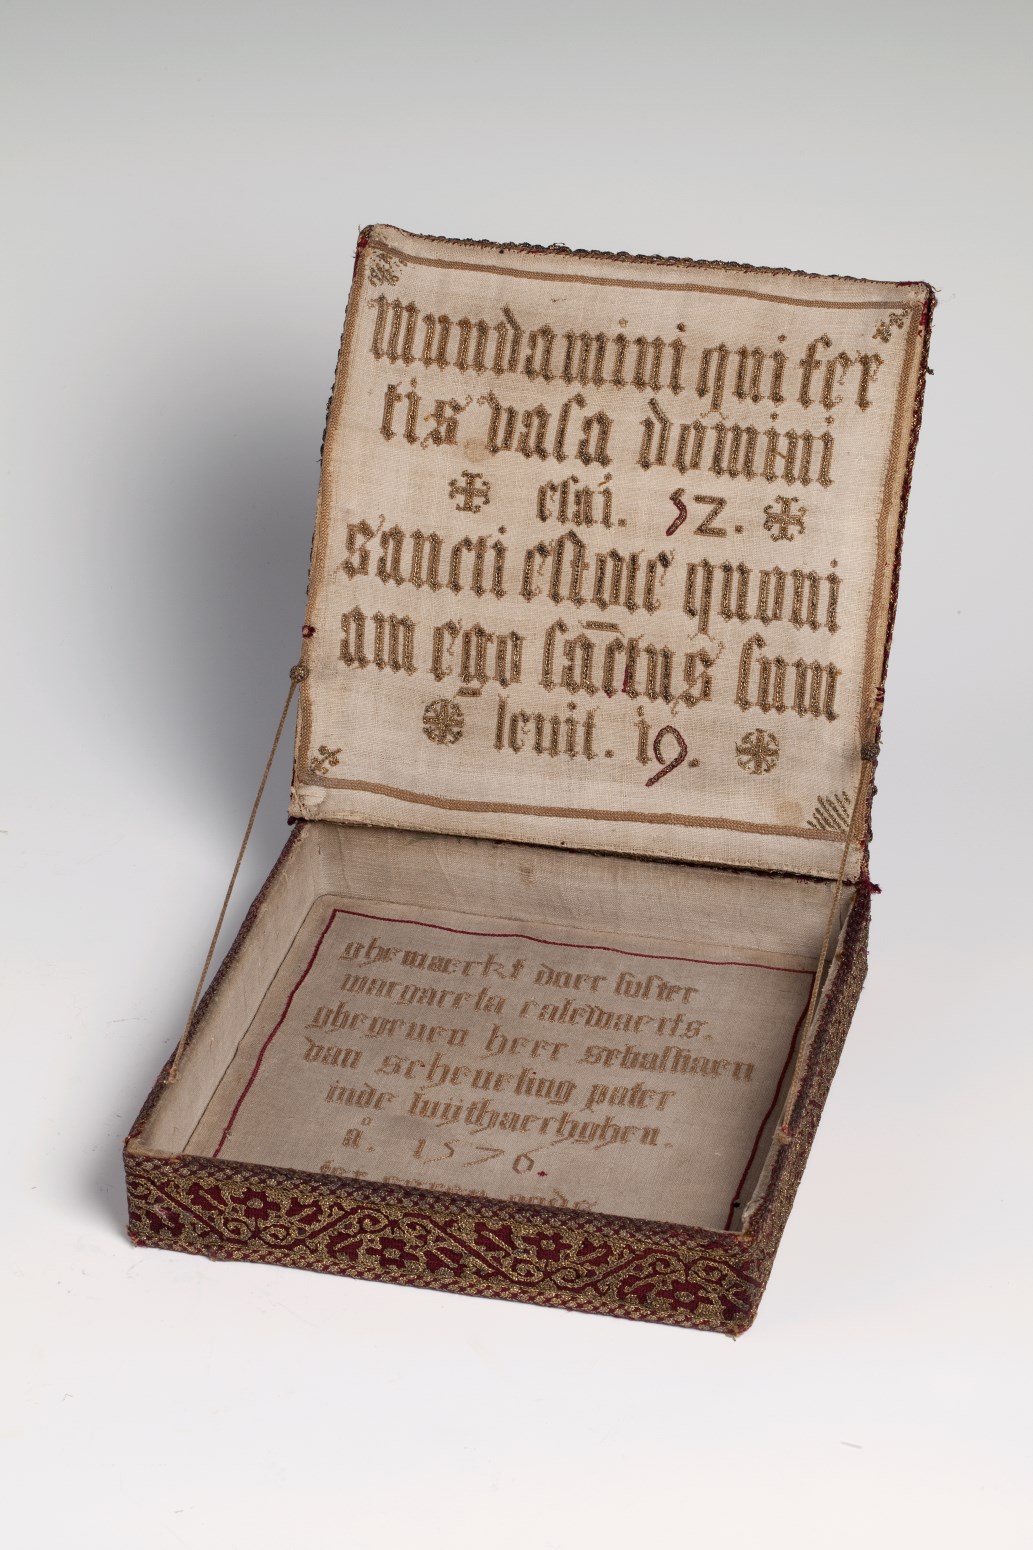 mundamini qui fer
tis vasa domini
esai. 52.
sancti estote quoni
am ego sāctus sum
leuit. 19.
ghewaerckt doer suster
margareta calewaerts.
ghegeuen heer sebastiaen
van scheueling pater
inde luijthaerhghen.
a°. 1576.